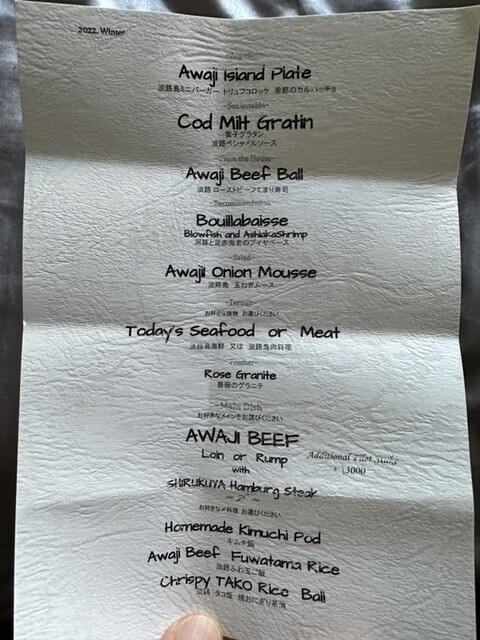 2022. Winter
~Appetizer~
Awaji Island Plate
淡路島ミニバーガー トリュフコロッケ 季節のカルパッチョ
~Seasonable~
Cod Milt Gratin
雲子グラタン
淡路ベシャメルソース
~From the House~
Awaji Beef Ball
淡路 ローストビーフてまり寿司
~Recommendation~
Bouillabaisse
Blowfish and AshiakaShrimp
河豚と足赤海老のブイヤベース
~Salad~
Awajil Onion Mousse
淡路島 玉ねぎムース
お好きな焼物 お選びください
Today's Seafood or Meat
淡路島海鮮 又は 淡路島肉料理
Rose Granite
薔薇のグラニテ
~Main Dish~
お好きなメインをお選びください
AWAJI BEEF
Loin or Rump
Additional Filet Steak
+ \3000
with
SHIRUKUYA Hamburg Steak
お好きな〆料理 お選びください
Homemade Kimuchi Pod
キムチ鍋
Awaji Beef Fuwatama Rice
淡路ふわ玉ご飯
Chrispy TAKO Rice Ball
淡路 タコ飯 焼おにぎり茶漬